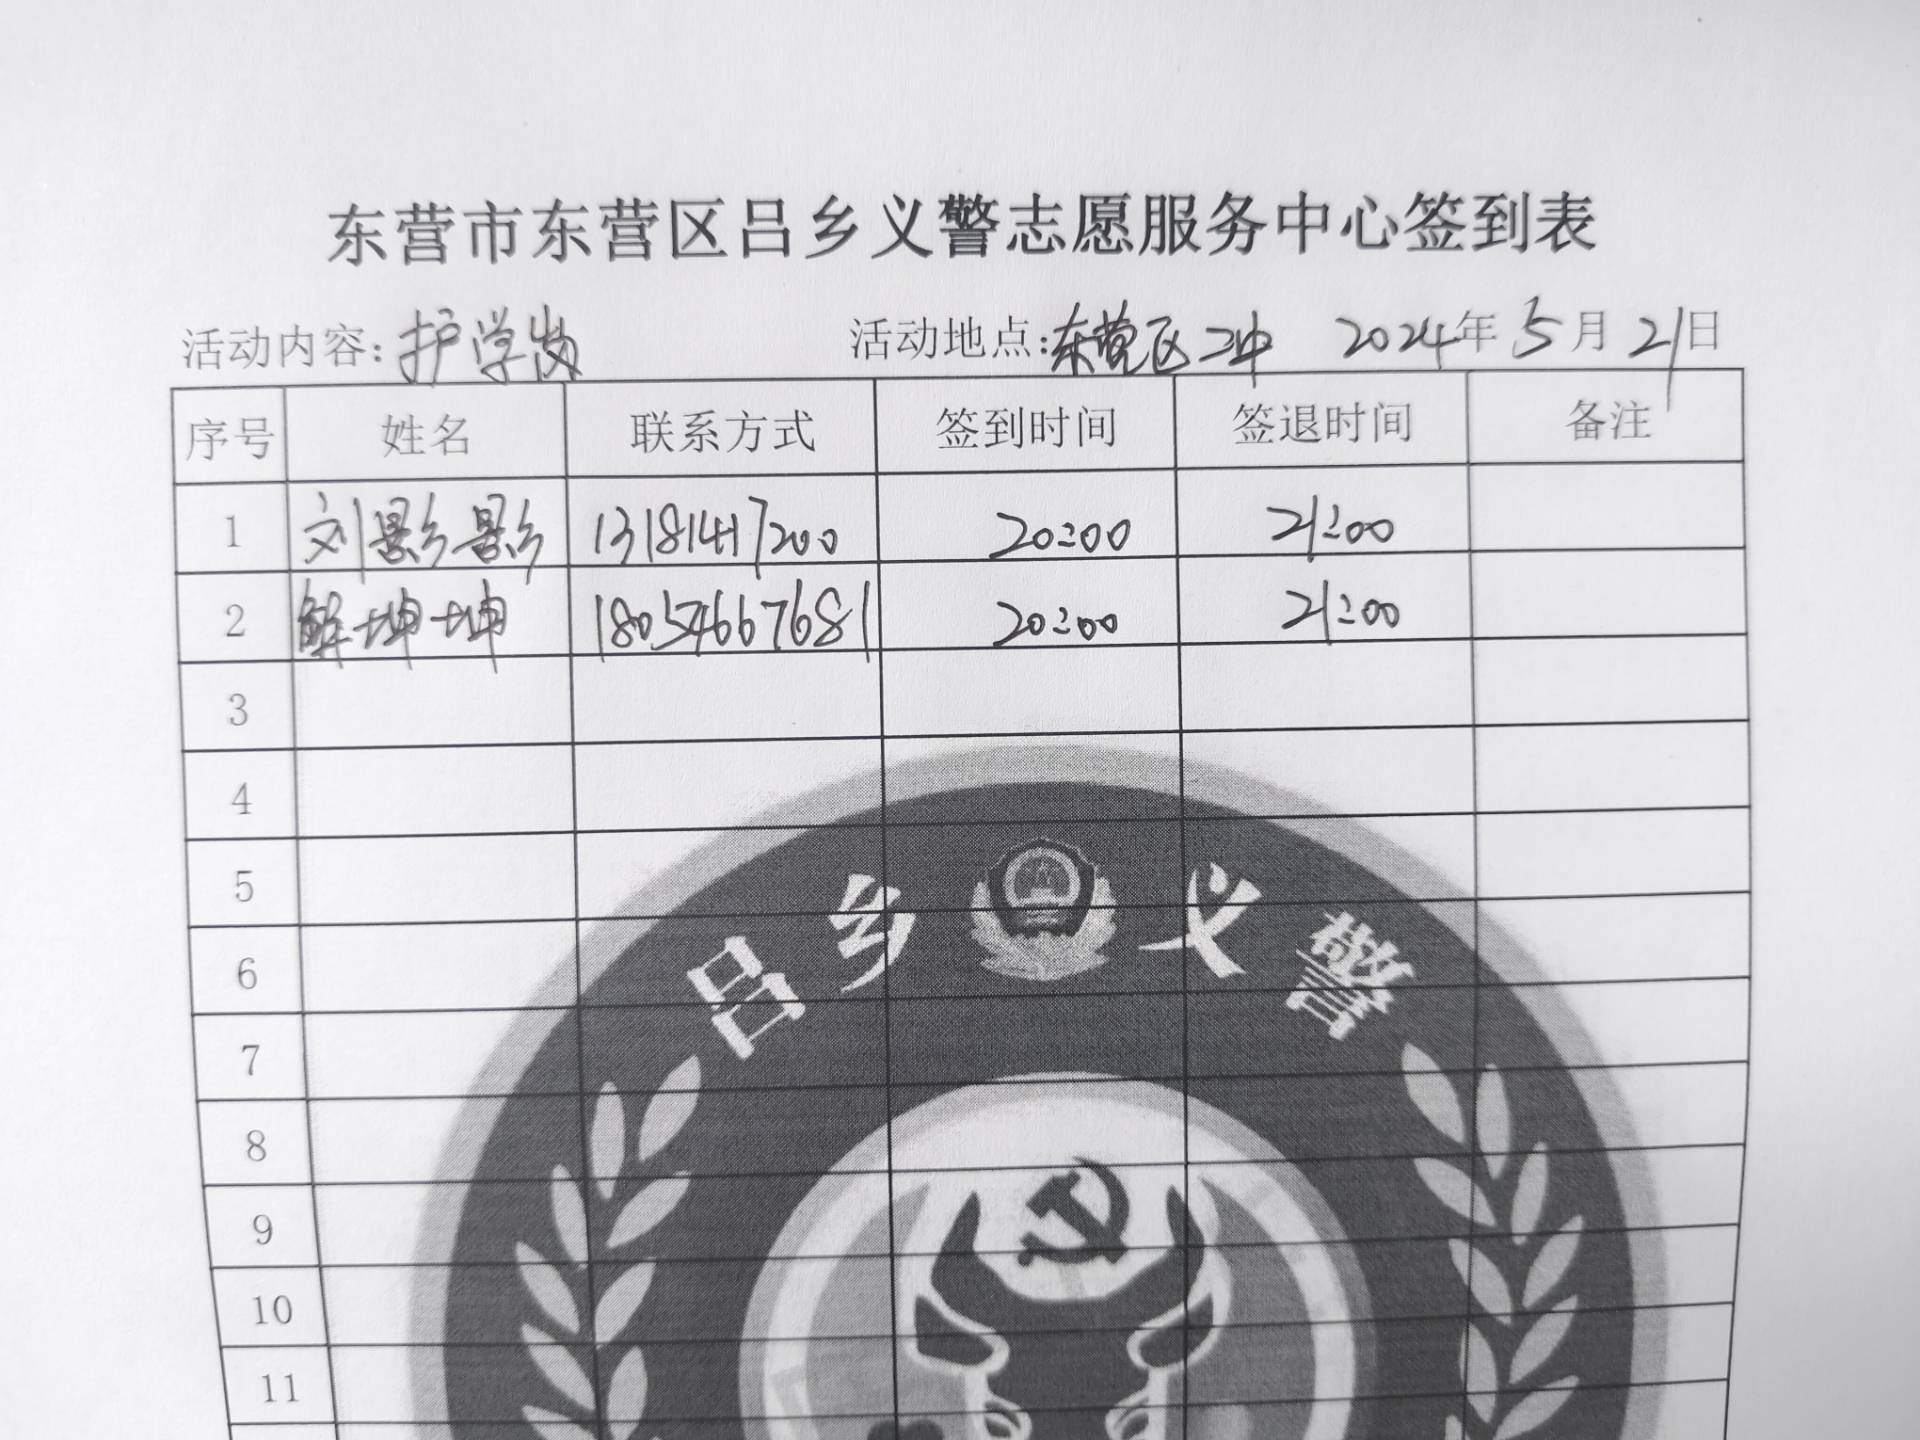 东营市东营区吕乡义警志愿服务中心签到表
活动内容:护学岗 活动地点:东营区二中 2024年5月21日
序号 姓名 联系方式 签到时间 签退时间 备注
1 刘影影 13181417200 20:00 21:00
2 解坤坤 18054667681 20:00 21:00
3
4
5
6
7
8
9
10
11
吕乡义警